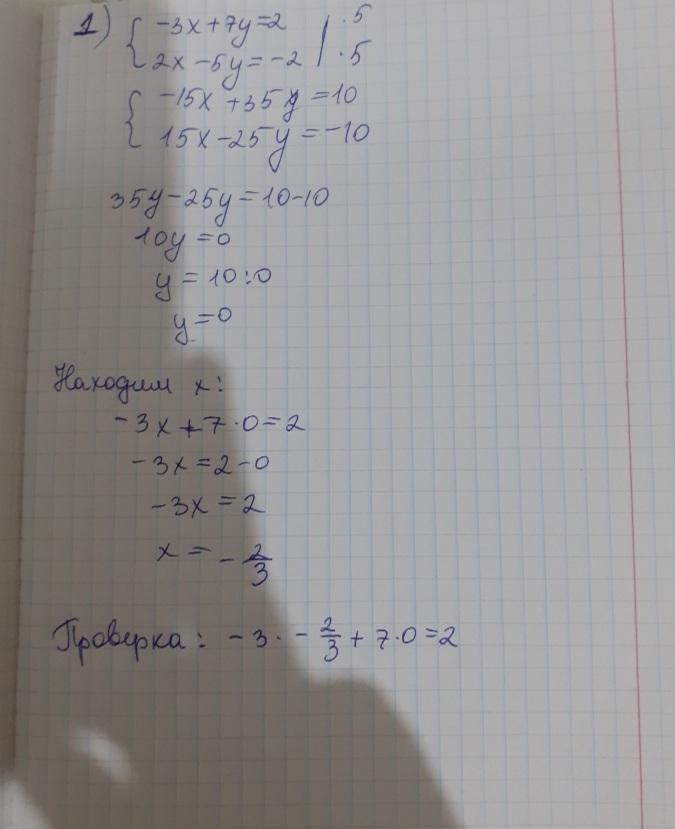 1) { -3x+7y=2 | ·5
2x-5y=-2 | ·5
{ -15x+35y=10
15x-25y=-10
35y-25y=10-10
10y=0
y=10:0
y=0
Находим x:
-3x+7·0=2
-3x=2-0
-3x=2
x=-2/3
Проверка: -3·-2/3+7·0=2